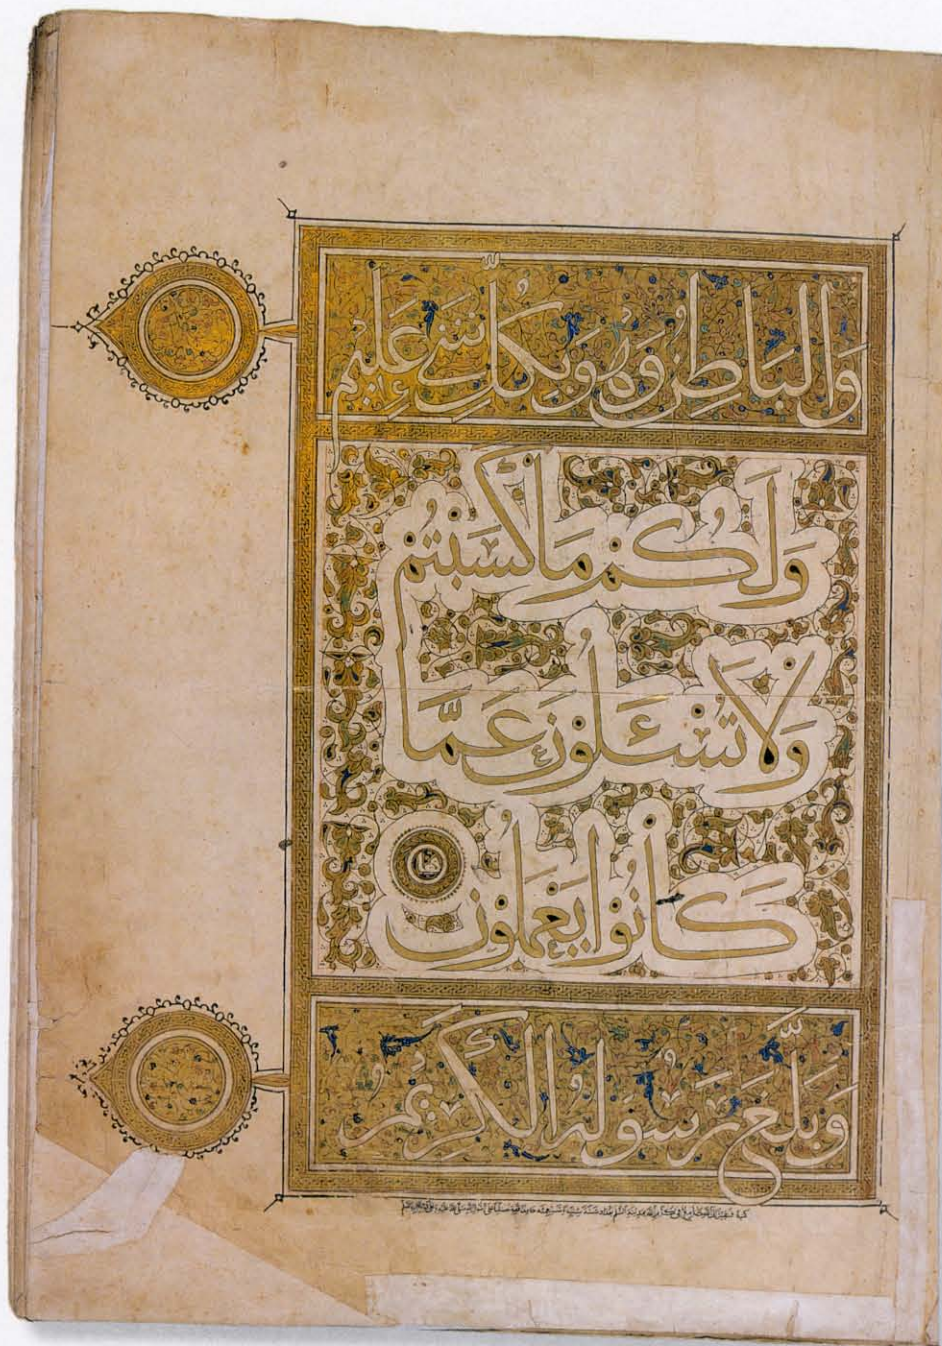 وَالبَاطِنُ وَهُوَ بِكُلِّ شَيْءٍ عَلِيمٌ
وَلَكُمْ مَا كَسَبْتُمْ
وَلَا تُسْئَلُونَ عَمَّا
كَانُوا يَعْمَلُونَ
وَبَلَّغَ رَسُولُهُ الْكَرِيمُ